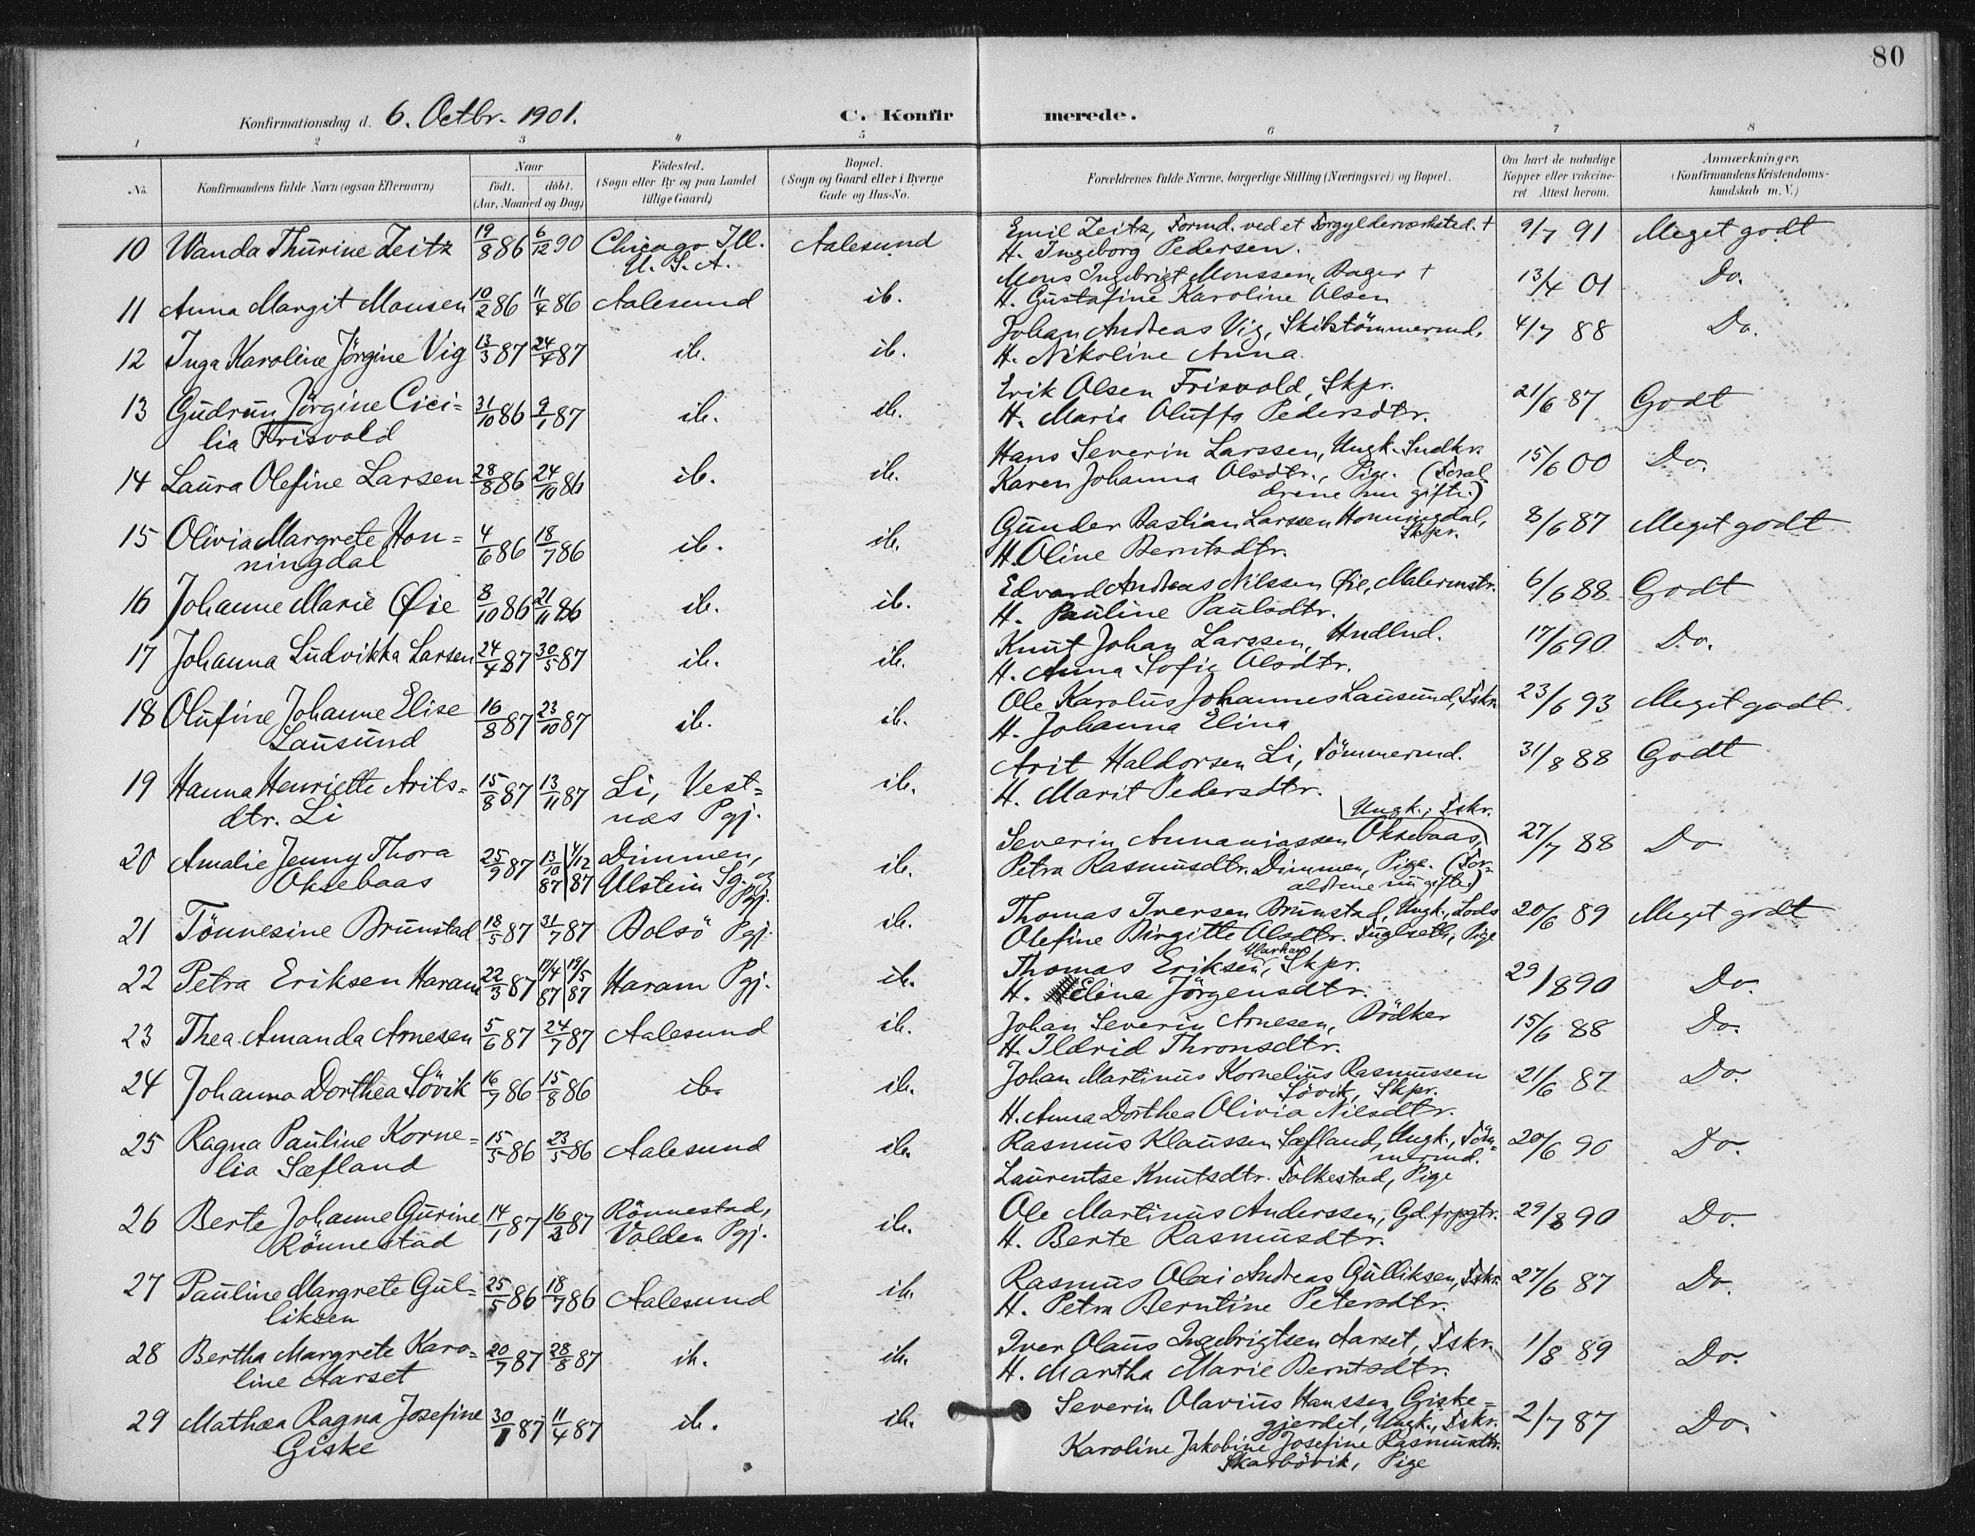 80
Konfirmationsdag d. 6. Octbr. 1901. C. Konfirmerede.
1 2 3 4 5 6 7 8
No. Konfirmandens fulde Navn (ogsaa Efternavn) Naar født. døbt. (Aar, Maaned og Dag) Fødested. (Sogn eller By og paa Landet tillige Gaard) Bopæl. (Sogn og Gaard eller i Byerne Gade og Hus-No. Forældrenes fulde Navne, borgerlige Stilling (Næringsvei) og Bopæl. Om havt de naturlige Kopper eller vakcineret Attest herom. Anmærkninger, (Konfirmandens Kristendomskundskab m. V.)
10 Wanda Thurine Zeitz 19/8 86 6/12 90 Chicago Ill. Aalesund Emil Zeitz, Formd. ved et Forgylderværksted. † 9/7 91 Meget godt
U. S. A. H. Ingeborg Pedersen.
11 Anna Margit Monsen 10/2 86 11/4 86 Aalesund ib. Mons Ingebrigt Monssen, Bager † 13/4 01 Do.
H. Gustafine Karoline Olsen
12 Inga Karoline Jörgine Vig 13/3 87 24/4 87 ib. ib. Johan Andreas Vig, Skibstömmermd. 4/7 88 Do.
H. Nikoline Anna.
13 Gudrun Jörgine Cici- 31/10 86 9/1 87 ib. ib. Erik Olsen Frisvold, Skpr. 21/6 87 Godt
lia Frisvold H. Maria Oluffa Pedersdtr.
14 Laura Olefine Larsen 28/8 86 24/10 86 ib. ib. Hans Severin Larssen, Ungk. Sndkr. 15/6 00 Do.
Karen Johanna Olsdtr., Pige. (Foræl
drene nu gifte.)
15 Olivia Margrete Hon= 4/6 86 18/7 86 ib. ib. Gunder Bastian Larssen Honningdal, 8/6 87 Meget godt
ningdal Skpr.
H. Oline Berntsdtr.
16 Johanne Marie Øie 8/10 86 21/11 86 ib. ib. Edvard Andreas Nilssen Øie, Malermstr. 6/6 88 Godt
H. Pauline Paulsdtr.
17 Johanna Ludvikka Larsen 24/4 87 30/5 87 ib. ib. Knut Johan Larssen, Hndlnd. 17/6 90 Do.
H. Anna Sofie Olsdtr.
18 Olufine Johanne Elise 16/8 87 23/10 87 ib. ib. Ole Karolus Johannes Lausund, Fskr. 23/6 93 Meget godt
Lausund H. Johanna Elina
19 Hanna Henriette Arits= 15/8 87 13/11 87 Li, Vest= ib. Arit Haldorsen Li, Tömmermd. 31/8 88 Godt
dtr. Li næs Pgj. H. Marit Pedersdtr.
Ungk., Fskr.
20 Amalie Jenny Thora 25/9 87 13/10 87 4/12 87 Dimmen, ib. Severin Annaniassen Oksebaas, 27/7 88 Do
Oksebaas Ulstein Sg. og Pgj. Petra Rasmusdtr. Dimmen, Pige. (For-
ældrene nu gifte)
21 Tönnesine Brunstad 18/5 87 31/7 87 Bolsö Pgj. ib. Thomas Iversen Brunstad, Ungk., Lods 20/6 89 Meget godt
Olefine Birgitte Olsdtr. Fuglseth, Pige
22 Petra Eriksen Haram 22/3 87 17/4 87 19/5 87 Haram Pgj. ib. Thomas Eriksen, Skpr. 29/8 90 Do.
H. Eline Jörgensdtr.
23 Thea Amanda Arnesen 5/6 87 24/7 87 Aalesund ib. Johan Severin Arnesen, Bödker 15/6 88 Do.
H. Ildrid Thronsdtr.
24 Johanna Dorthea Sövik 16/7 86 15/8 86 ib. ib. Johan Martinus Kornelius Rasmussen 21/6 87 Do.
Sövik, Skpr.
H. Anna Dorthea Olivia Nilsdtr.
25 Ragna Pauline Korne= 15/5 86 23/5 86 Aalesund ib. Rasmus Klaussen Sæfland, Ungk., Töm= 20/6 90 Do.
lia Sæfland mermd.
Laurentse Knutsdtr. Folkestad, Pige
26 Berte Johanne Gurine 14/1 87 16/2 87 Rönnestad, ib. Ole Martinus Anderssen, Gd.frpgtr. 29/8 90 Do.
Rönnestad Volden Pgj. H. Berte Rasmusdtr.
27 Pauline Margrete Gul= 25/5 86 18/7 86 Aalesund ib. Rasmus Olai Andreas Gulliksen, Fskr. 27/6 87 Do.
liksen H. Petra Berntine Petersdtr.
28 Bertha Margrete Karo= 20/7 87 28/8 87 ib. ib. Iver Olaus Ingebrigtsen Aarset, Fskr. 1/8 89 Do.
line Aarset H. Martha Marie Berntsdtr.
29 Mathea Ragna Josefine 30/1 87 11/4 87 ib. ib. Severin Olavius Hanssen Giske= 2/7 87 Do.
Giske gjerdet, Ungk., Fskr.
Karoline Jakobine Josefine Rasmusdtr.
Skarbövik, Pige